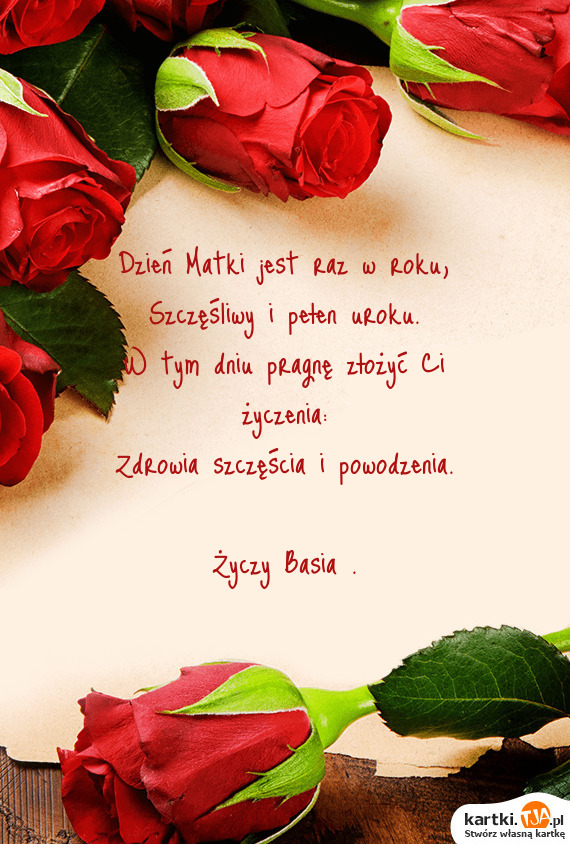 Dzień Matki jest raz w roku,
Szczęśliwy i pełen uroku.
W tym dniu pragnę złożyć Ci
życzenia:
Zdrowia szczęścia i powodzenia.
Życzy Basia .
kartki.TJA.pl
Stwórz własną kartkę